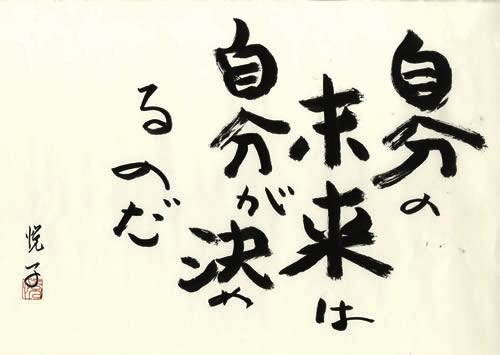 自分の
未来は
自分が決め
るのだ
悦子